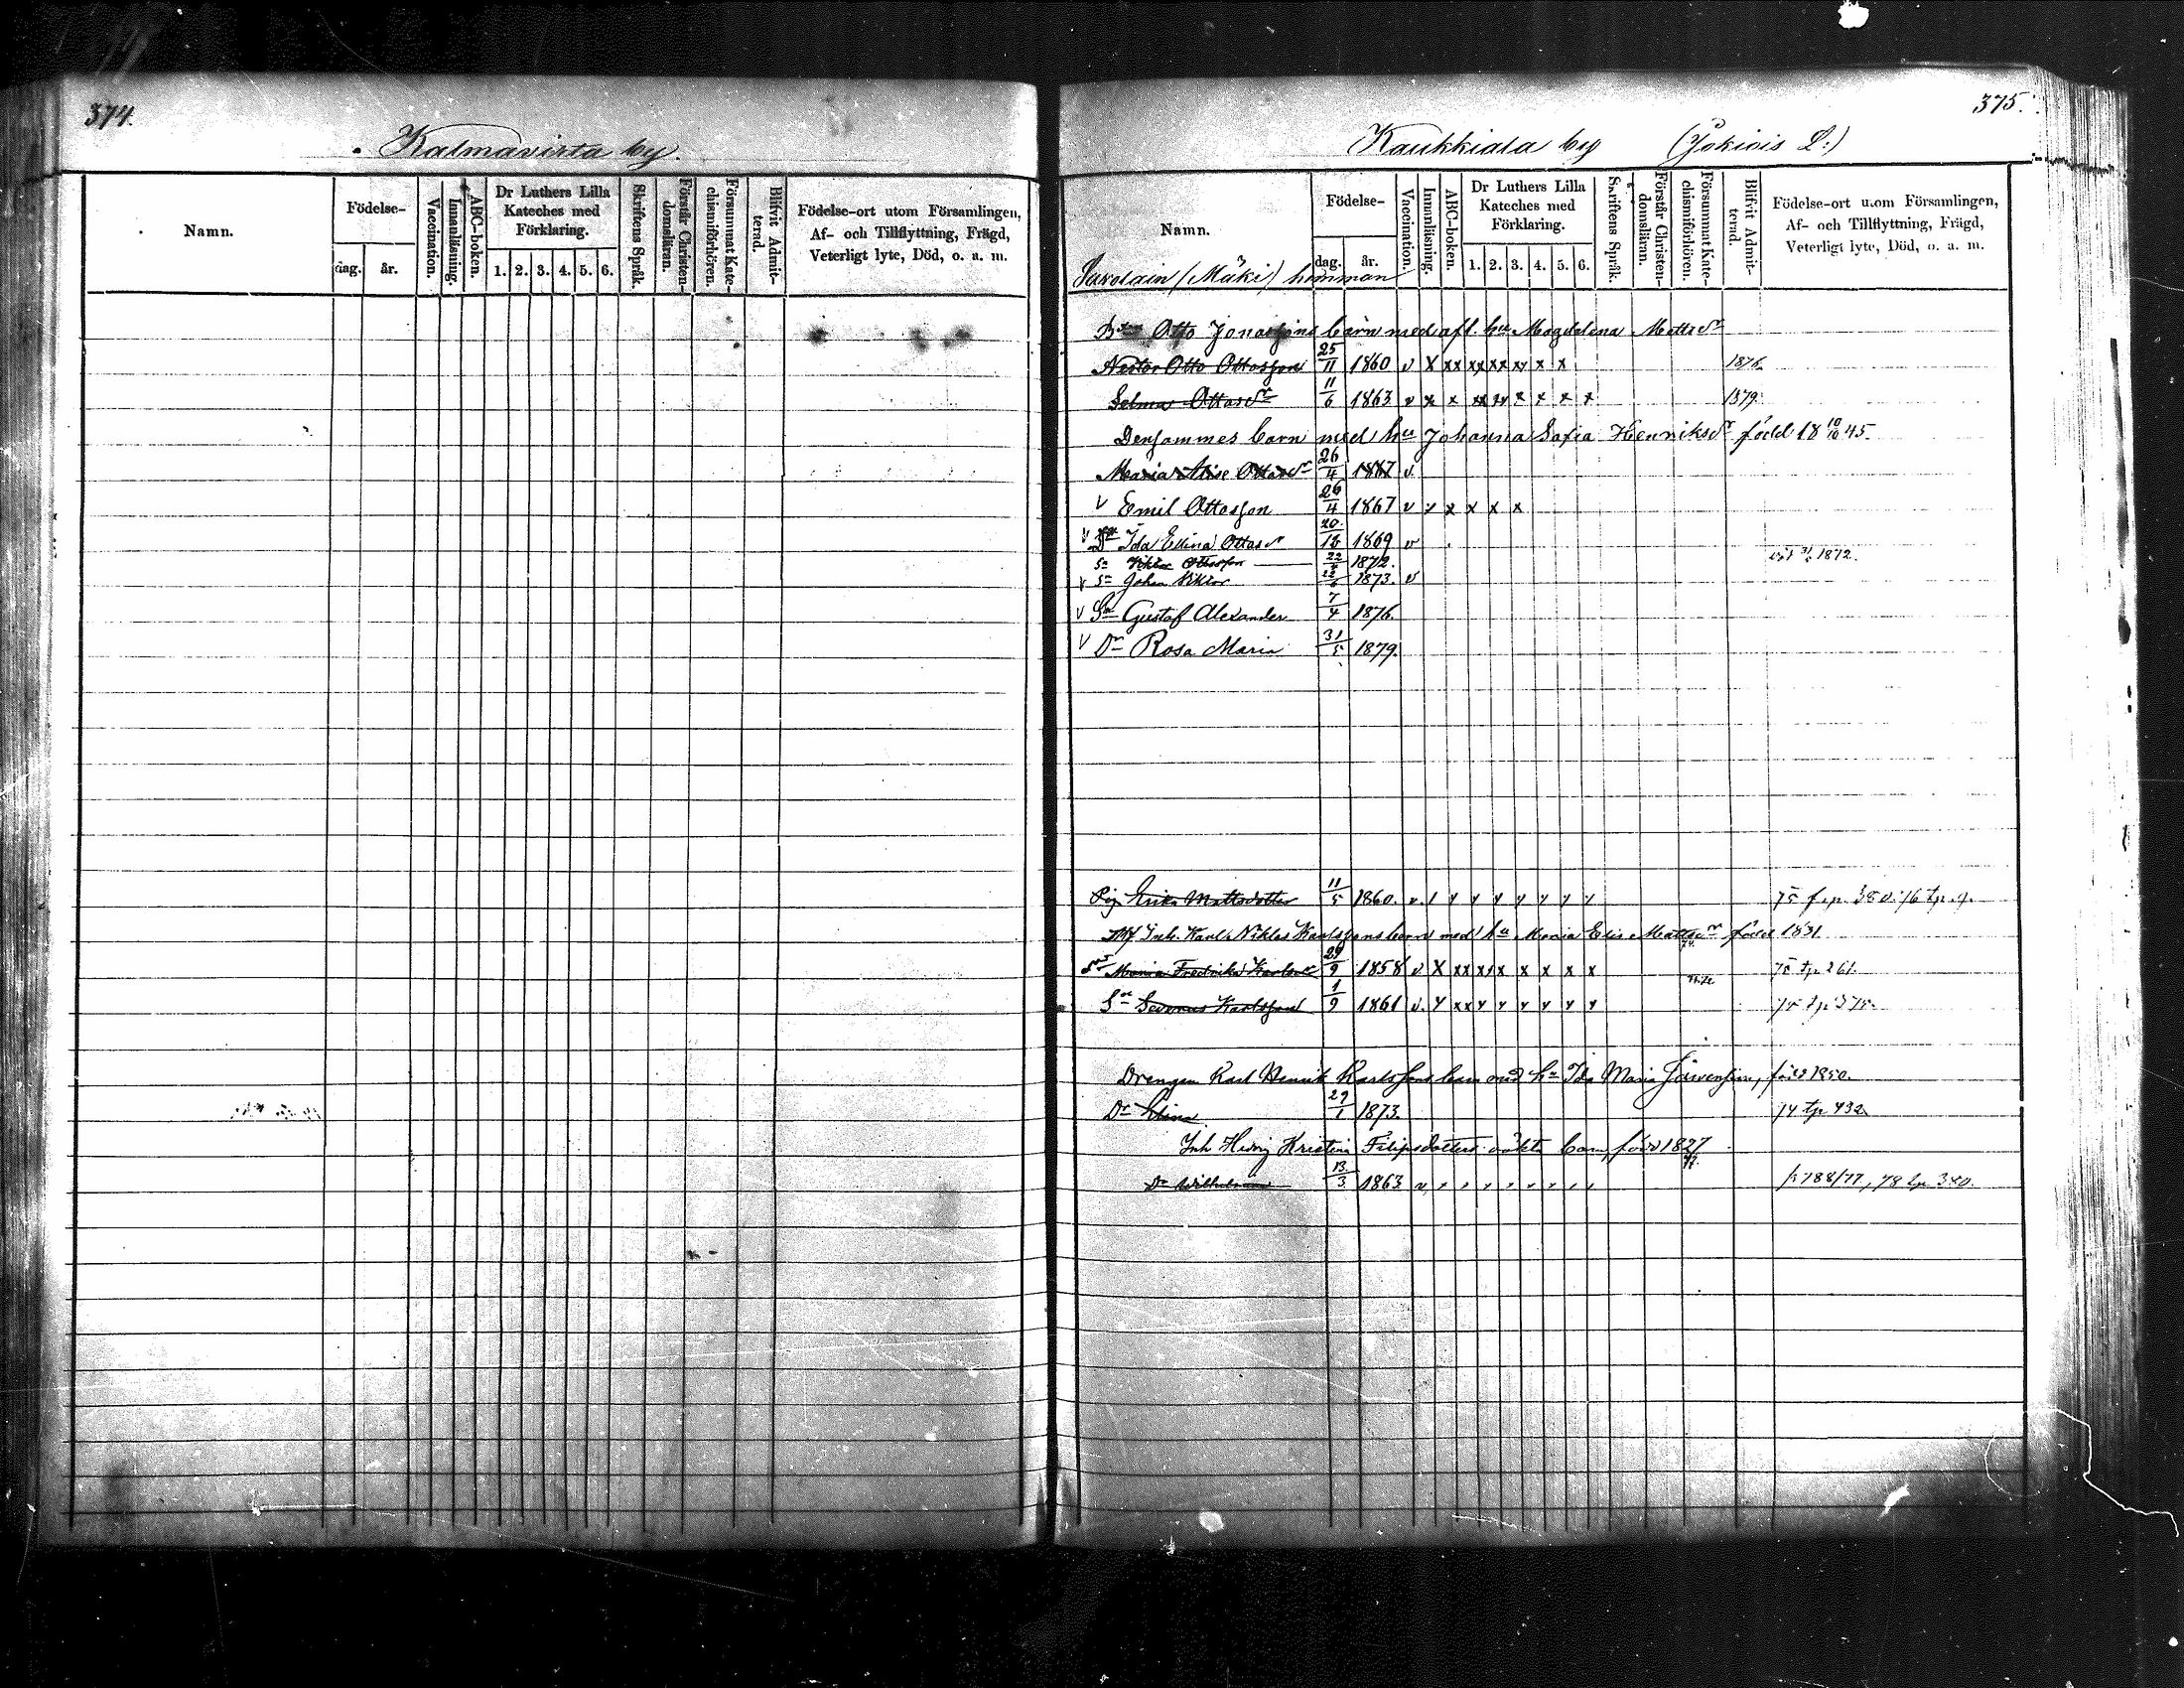 374.
Kalmavirta by.
Namn.
Födelse-
dag. år.
Vaccination.
Innanläsning.
ABC-boken.
Dr Luthers Lilla
Kateches med
Förklaring.
1. 2. 3. 4. 5. 6.
Skriftens Språk.
Förstår Christen-
domsläran.
Försummat Kate-
chismiförhören.
Blifvit Admit-
terad.
Födelse-ort utom Församlingen,
Af- och Tillflyttning, Frägd,
Veterligt lyte, Död, o. a. m.
375.
Kaukkiala by (Jokiois L:)
Namn.
Födelse-
dag. år.
Vaccination.
Innanläsning.
ABC-boken.
Dr Luthers Lilla
Kateches med
Förklaring.
1. 2. 3. 4. 5. 6.
Skriftens Språk.
Förstår Christen-
domsläran.
Försummat Kate-
chismiförhören.
Blifvit Admit-
terad.
Födelse-ort utom Församlingen,
Af- och Tillflyttning, Frägd,
Veterligt lyte, Död, o. a. m.
(Mäki) hemman
Otto Jonassons barn med afl. hu Magdalena Mattsdr
Nestor Otto Ottosson 25/11 1860 v x xx xx xx xx x x 1876
Selma Ottosdr 11/6 1863 v x x xx xx x x x x 1879
Densammes barn med hu Johanna Sofia Henriksdr född 18 10/10 45.
Maria Alise Ottosdr 26/4 1867 v.
v Emil Ottosson 26/4 1867 v v x x x x
v Dr Ida Elina Ottosdr 20/12 1869 v
Sn Viktor Ottosson 22/ 1872. 1872.
v Sn Johan Viktor 22/ 1873. v
v Sn Gustaf Alexander 7/4 1876.
v Dr Rosa Maria 31/5 1879.
Pig. Erika Mattsdotter 11/5 1860. v. 75 f.
Inh. Karl Niklas Karlssons barn med hu Maria Elis. Mattsdr född 1831
Maria Fredrika Karlsdr 29/9 1858 v. x xx xx x x x x x 75 tp 261.
Sn Severus Karlsson 1/9 1861 v.
Drengen Karl Henrik Karlssons barn med hu Ida Maria Järvensivu, född 1850.
Dr Elina 29/1 1873. 74 tp 432
Inh Hedvig Kristina Filipsdotters oäkta barn, född 1827
Dr Wilhelmina 13/3 1863 v 188/77, 78 tp 340.